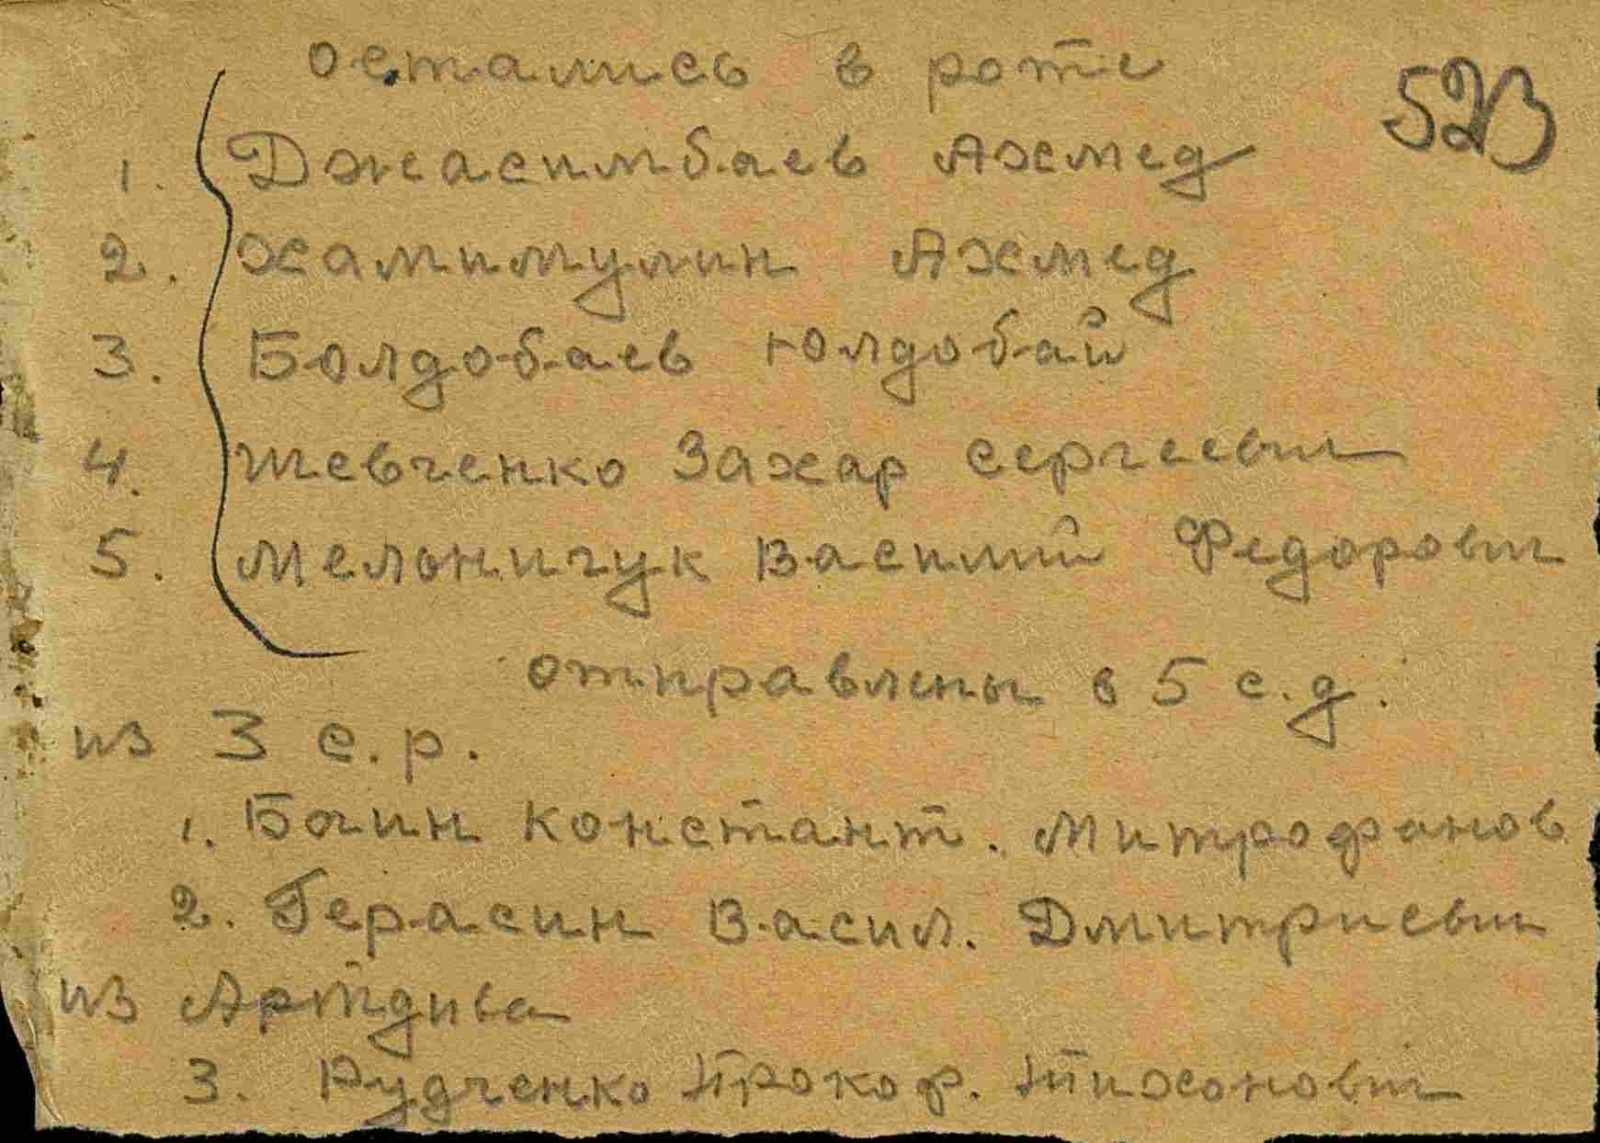 остались в роте
523
1. Джасимбаев Ахмед
2. Хамимулин Ахмед
3. Болдобаев Юлдобай
4. Шевченко Захар Сергеевич
5. Мельничук Василий Федорович
отправлены в 5 с.д.
из 3 с.р.
1. Бочин Констант. Митрофанов.
2. Герасин Васил. Дмитриевич
из Артдива
3. Рудченко Прокоф. Тихонович